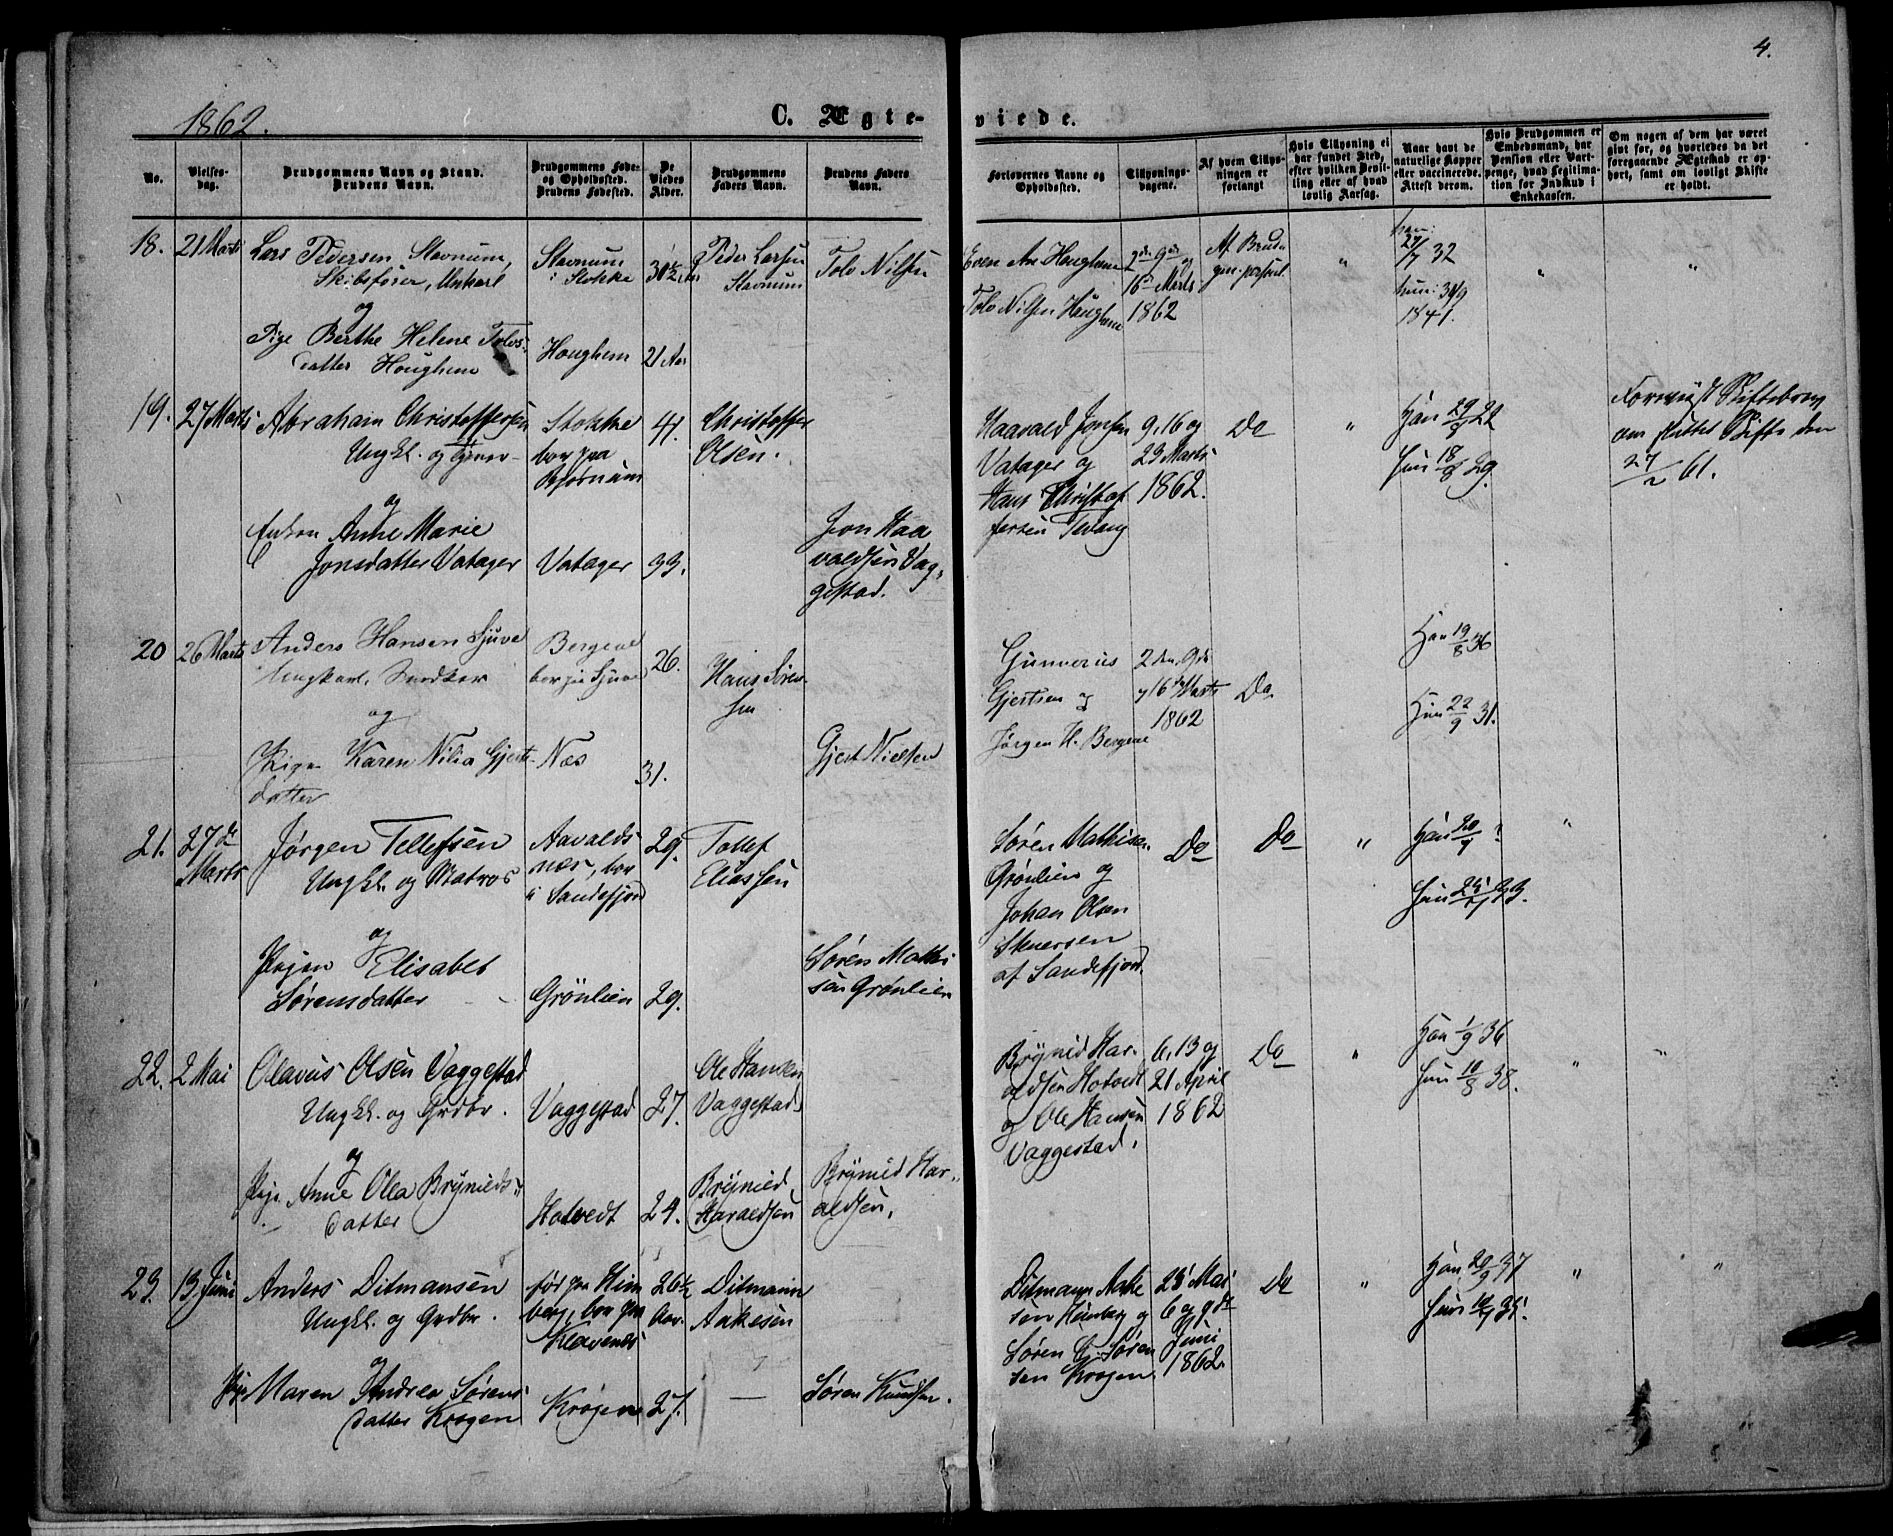 4.
1862.
C. Ægte-
viede.
No.
Vielses-
dag.
Brudgommens Navn og Stand.
Brudens Navn.
Brudgommens Føde-
og Opholdssted.
Brudens Fødested.
De
Viedes
Alder.
Brudgommens
Faders Navn.
Brudens Faders
Navn.
Forlovernes Navne og
Opholdssted.
Tillysnings-
dagene.
Af hvem Tillys-
ningen er
forlangt
Hvis Tillysning ei
har fundet Sted,
efter hvilken Bevil-
ling eller af hvad
lovlig Aarsag.
Naar havt de
naturlige Kopper
eller vaccinerede.
Attest derom.
Hvis Brudgommen er
Embedsmand, har
Pension eller Vart-
penge, hvad Legitima-
tion for Indskud i
Enkekassen.
Om nogen af dem har været
gift før, og hvorledes da det
foregaaende Ægteskab er op-
hørt, samt om lovligt Skifte
er holdt.
18.
21 Marts
Lars Pedersen Stavnum,
Skibsfører, Unkarl
og
Pige Berthe Helene Tolvs-
datter Houghem
Stavnum
i Stokke
Houghem
30½ Aar
21 Aar
Peder Larsen
Stavnum
Tolv Nilsen
Even Houghem
Tolv Nilsen Houghem
2den 9de og
16de Marts
1862
Af Brud-
gom. person.
"
han:
27/7 32
hun: 30/9
1841.
"
"
19.
27 Marts
Abraham Christoffersen
Ungkl. og
og
Enken Anne Marie
Jonsdatter Vatager
Stokke
bor paa
Bjørnum
Vatager
41.
33.
Christoffer
Olsen.
Jon Haa
valdsen Vag-
gestad.
Haavald Jonsen
Vatager og
Hans Christof
fersen Tvang
9, 16 og
23 Marts
1862.
Do
"
Han 29/9 22
Hun 18/8 29.
Forevist Skiftebrev
om sluttet Skifte den
27/2 61.
20
26 Marts
Anders Hansen Sjuve
Ungkarl,
og
Pige Karen Nilia Gjerts-
datter
Bergene
bor pa Sjuve
Næs
26.
31.
Hans Søren-
sen
Gjert Nielsen
Gunnerus
Gjertsen og
Jørgen H. Bergene
2den, 9de
og 16de Marts
1862
Do.
Han 19/8 36
Hun 22/9 31.
21.
27de
Marts
Jørgen Tellefsen
Ungkl. og Matros
og
Pigen Elisabet
Sørensdatter
Aavalds
næs, bor
i Sandefjord
Grönlien
29.
29.
Tollef
Eliassen
Søren Mathi
sen Grönlien
Søren Mathisen
Grönlien og
Johan Olsen
Stenersen
af Sandefjord.
Do
Do
"
Han 20/9 ?
Hun
"
22.
2 Mai
Olavus Olsen Vaggestad
Ungkl. og Grdbr.
og
Pige Anne Olea Bryniels-
datter
Vaggestad
Hotvedt
27.
24.
Ole Hansen
Vaggestad
Bryniel
Haraldsen
Bryniel Har-
aldsen.
Bryniel Har-
aldsen Hotvedt
og Ole Hansen
Vaggestad.
6, 13 og
21 April
1862
Do
"
Han 1/9 36
Hun 10/8 38.
"
"
23.
13 Juni
Anders Ditmansen
Ungkl. og Grdbr.
og
Pige Maren Andrea Sørens-
datter Krogen
født paa Him
berg, bor paa
Klavenes
Krogen
26½
Aar.
27.
Ditmann
Aakesen
—
Søren Knudsen.
Ditmann Aake
sen Himberg og
Søren Chr. Søren
sen Krogen.
25 Mai
6 og 9de
Juni
1862.
Do
"
Han 20/9 37
Hun
"
"